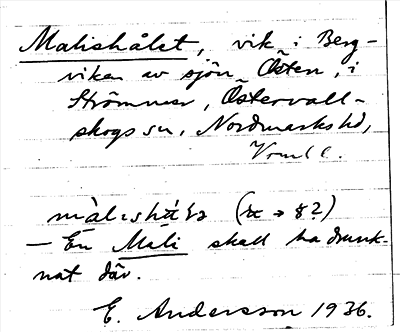 Malishålet, vik i Berg-
viken av sjön Östen, i
Strömmer, Östervall-
skogs sn, Nordmarks hd,
Vrml l.
màl:shá'ɫə
— En Mali skall ha drunk-
nat där.
E. Andersson 1936.